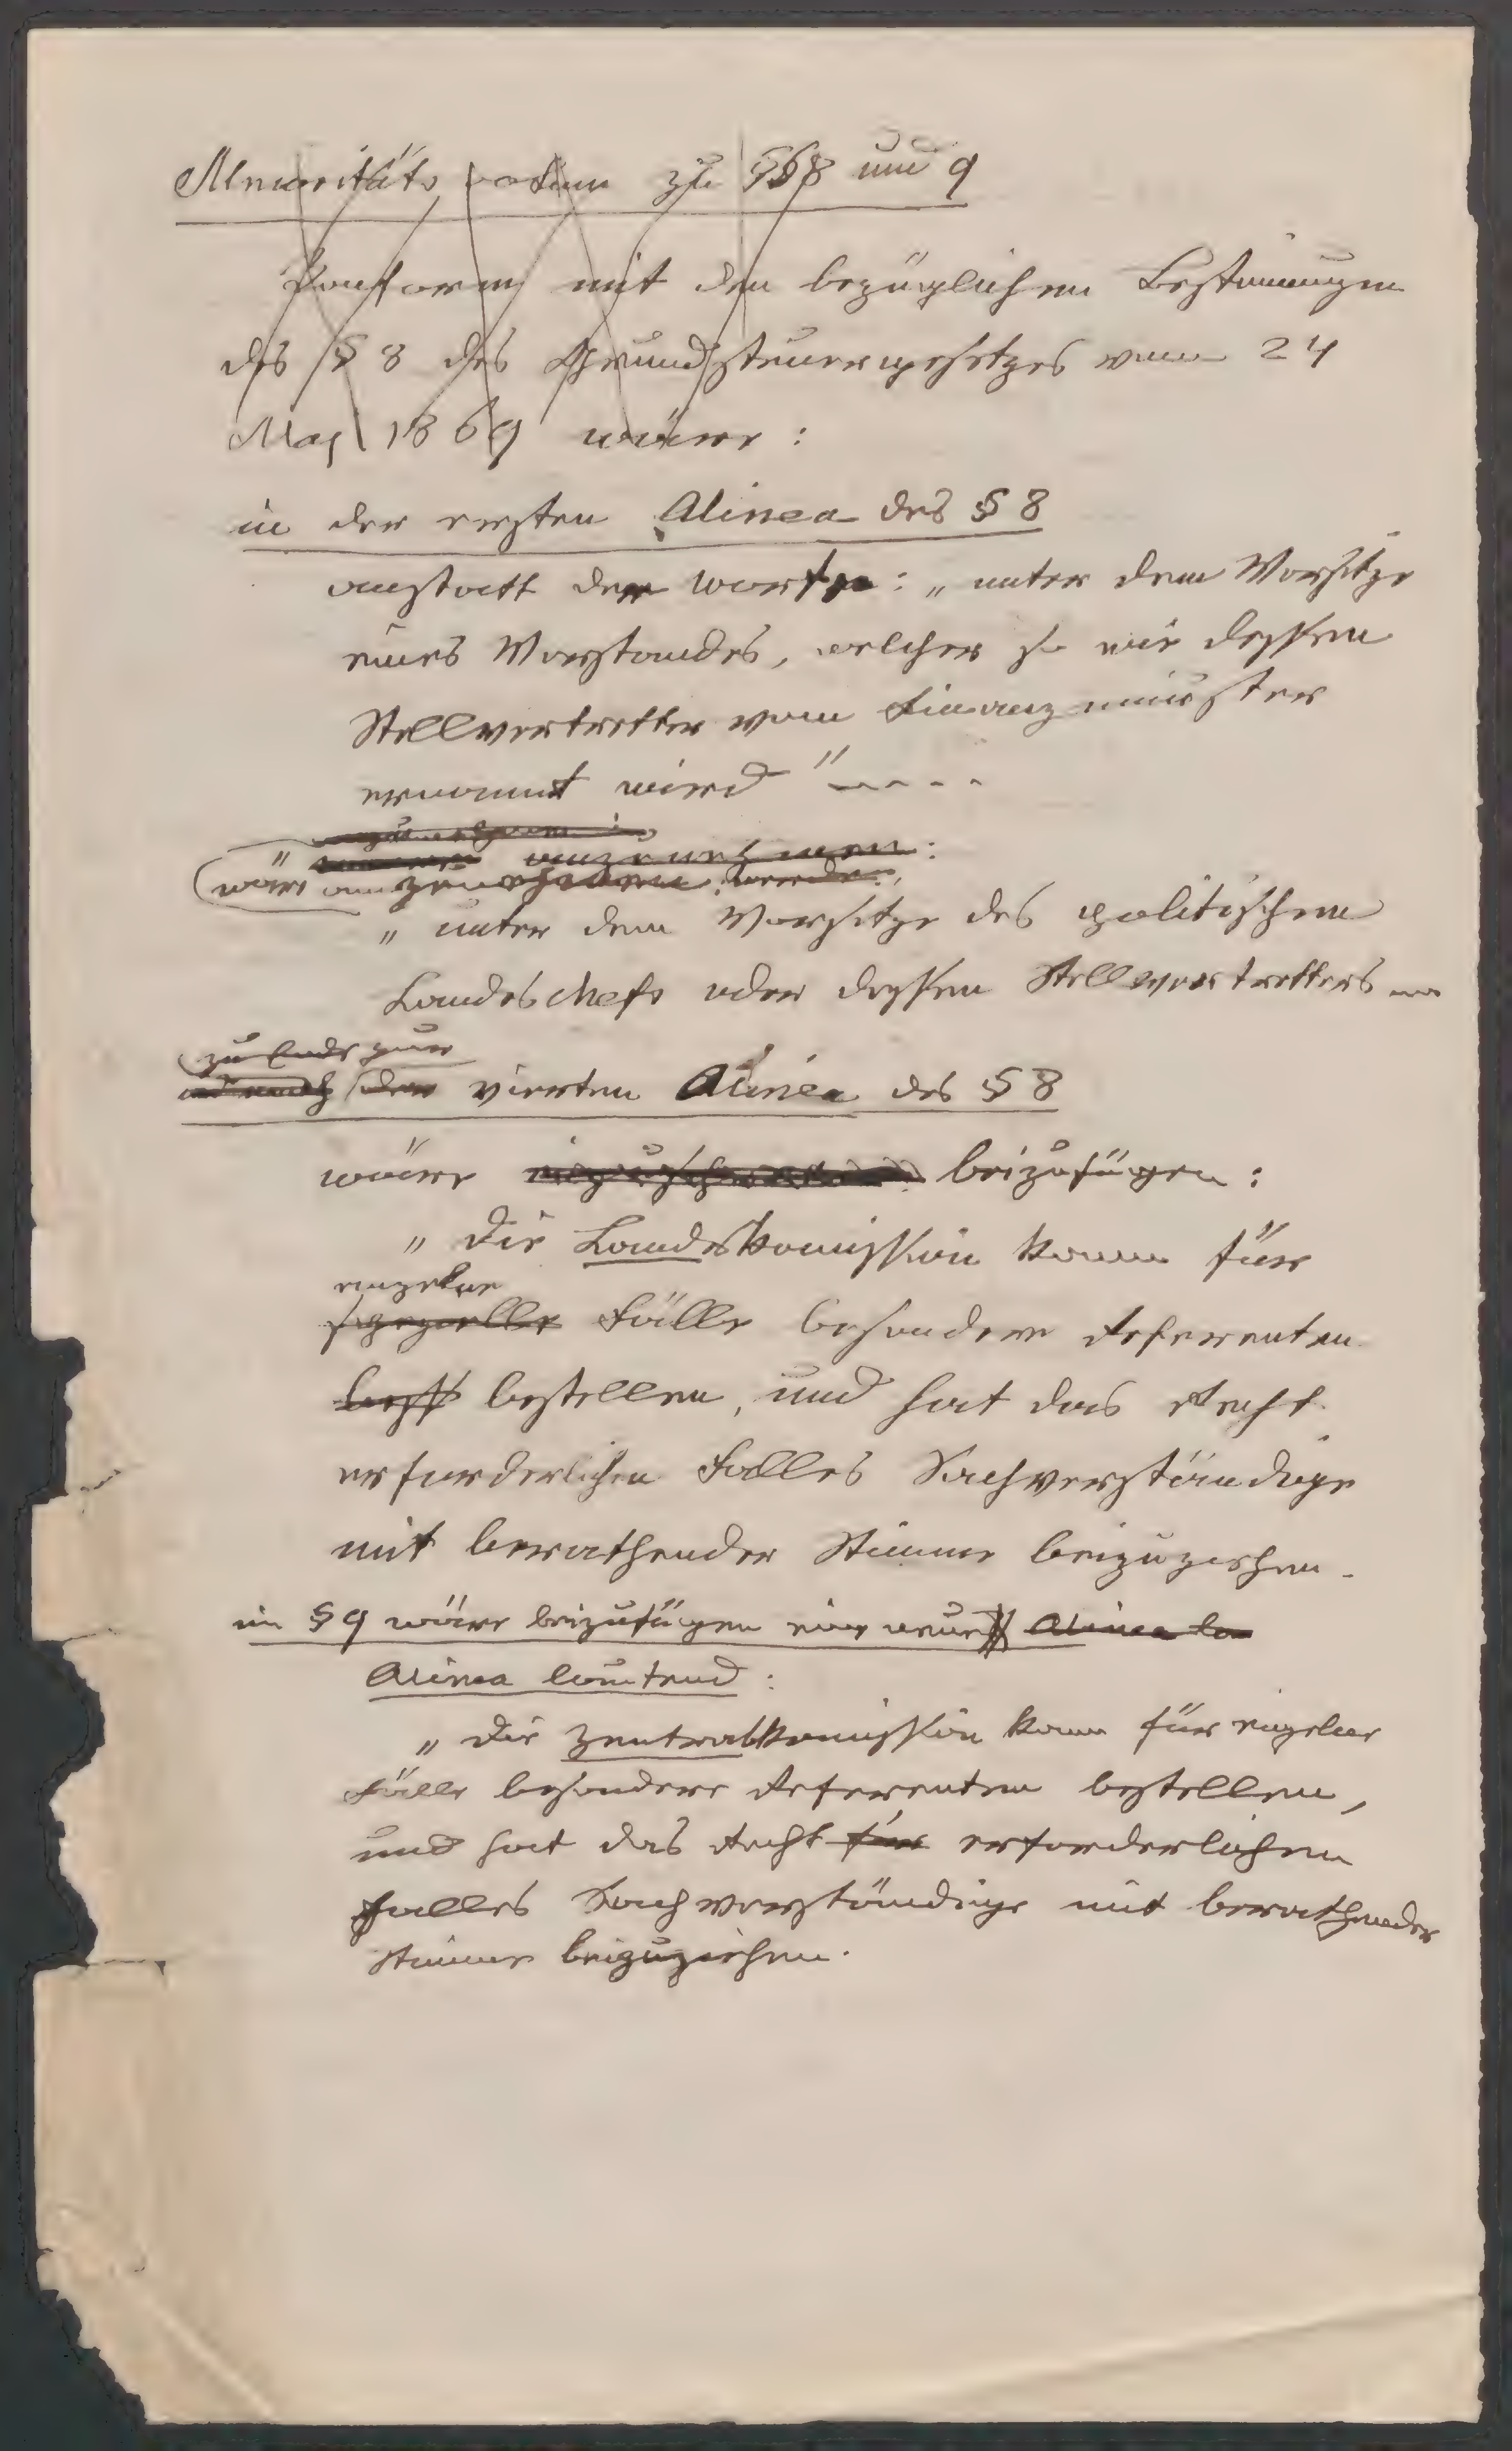 Minoritäts votum zu §§ 8 und 9
Konform mit den bezüglichen Bestimungen
des § 8 des Grundsteuergesetzes vom 24
May 1869 wäre:
in der ersten Alinea des § 8
anstatt der Worte: „unter dem Vorsitze
eines Vorstandes, welcher so wie dessen
Stellvertretter vom Finanzminister
ernannt wird" ----
" anzunehmen:
wäre
„unter dem Vorsitze des politischen
Landeschefs oder dessen Stellvertretters
zu Ende zur
der vierten Alinea des § 8
wäre beizufügen:
„Die Landeskomission kann für
einzelne
spezielle Fälle besondere Referenten
bestellen, und hat das Recht
erforderlichen Falles Sachverständige
mit berathender Stimme beizuziehen.
im § 9 wäre beizufügen eine neue Alinea la
Alinea lautend:
„Die Zentralkomission kann für einzelne
Fälle besondere Referenten bestellen,
und hat das Recht für erforderlichen
Falles Sachverständige mit berathender
Stimme beizuziehen.